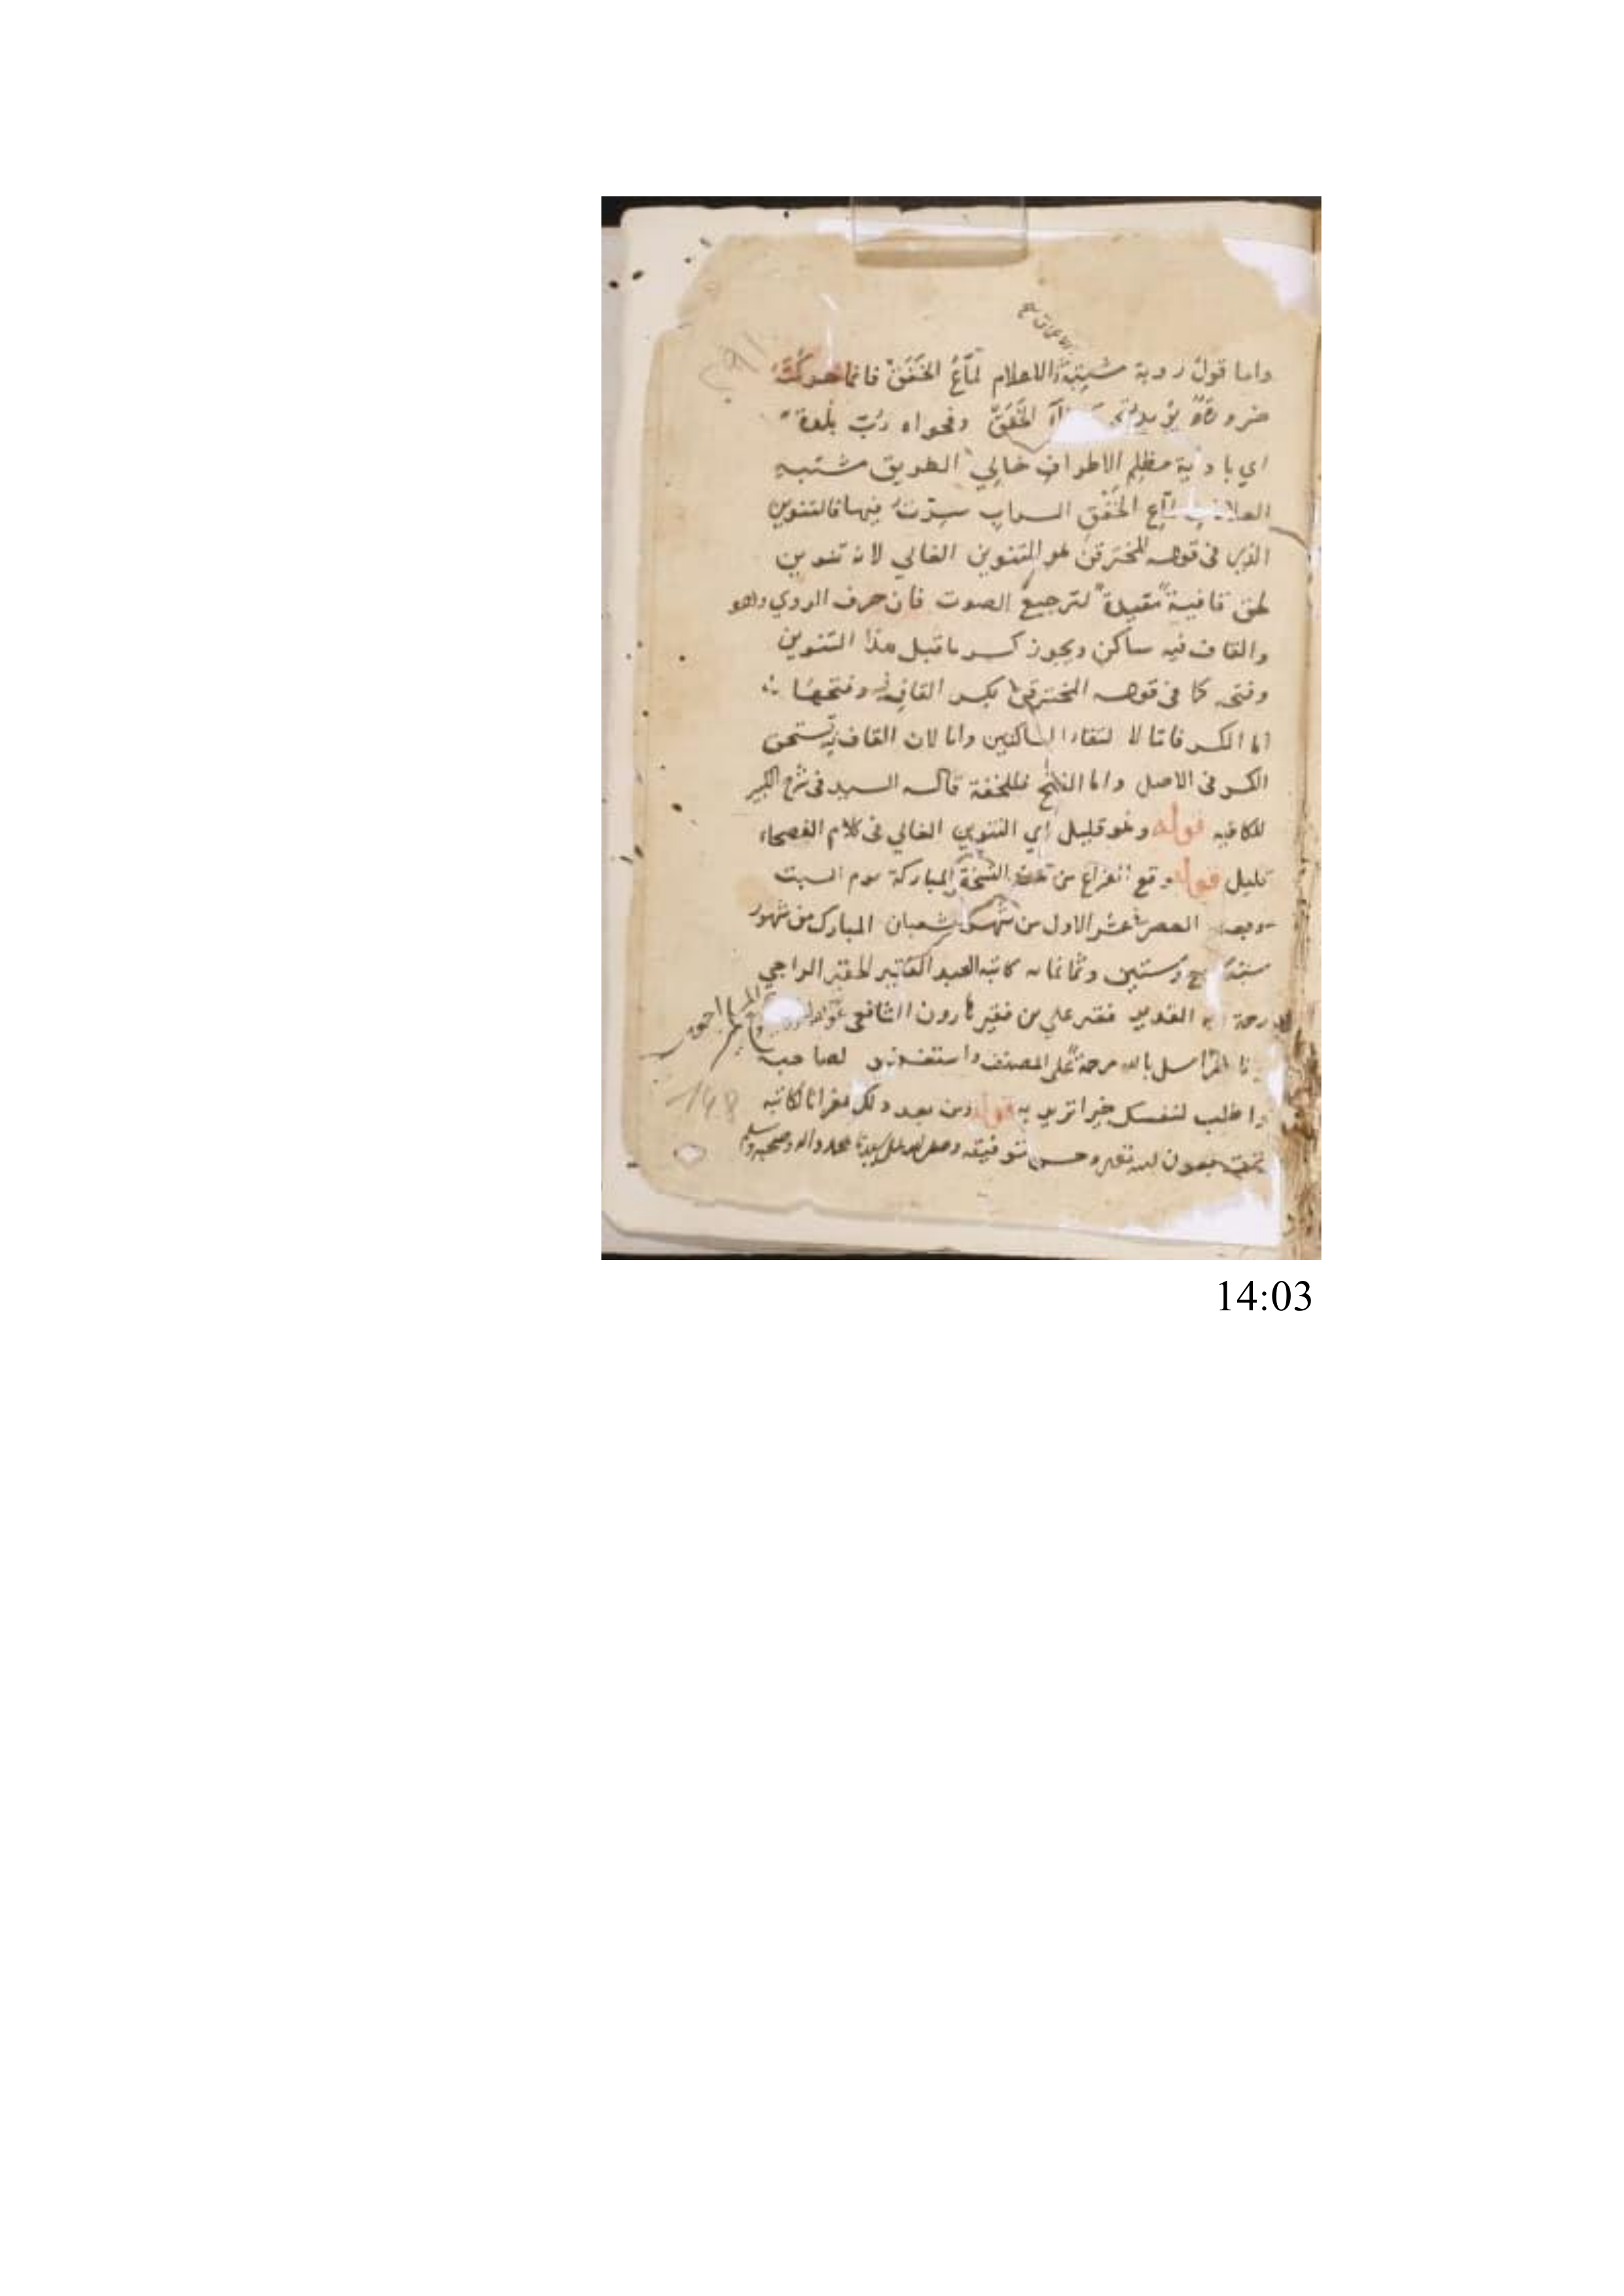 واما قول روبة مشتبه الاعلام لماع الخفق فانما حركت
ضرورة الخفق وفحواه رب بلدة
اي بادية مظلم الاطراف خالي الطريق مشتبه
العلامات لماع الخفق السراب سرت فيها فالتنوين
الذي في قوله المخترقن هو التنوين الغالي لانه تنوين
لحق قافية مقيدة لترجيع الصوت فان حرف الروي وهو
والقاف فيه ساكن ويجوز كسر ما قبل هذا التنوين
وفتحه كما في قوله المخترقن بكسر القاف وفتحها
اما الكسر فاما لا لتقاء الساكنين واما لان القاف يستحق
الكسر في الاصل واما الفتح فللخفة قاله السيد في شرح الكبير
للكافيه قوله وهو قليل اي التنوين الغالي في كلام الفصحاء
قليل قوله وقع الفراغ من هذه النسخة المباركة يوم السبت
العصر في عشر الاول من شهر شعبان المبارك من شهور
سنة وستين وثمانمايه كاتبه العبد الفقير الحقير الراجي
رحمة القدير فقير علي بن فقير هارون الشافعي
سل بالله مرحمة على المصنف واستغفر لصاحبه
واطلب لنفسك خيرا تريد به قوله ومن بعد ذلك غفرانا لكاتبه
تمت بعون الله تعالى وحسن توفيقه وصلى الله على سيدنا محمد واله وصحبه وسلم
148
14:03